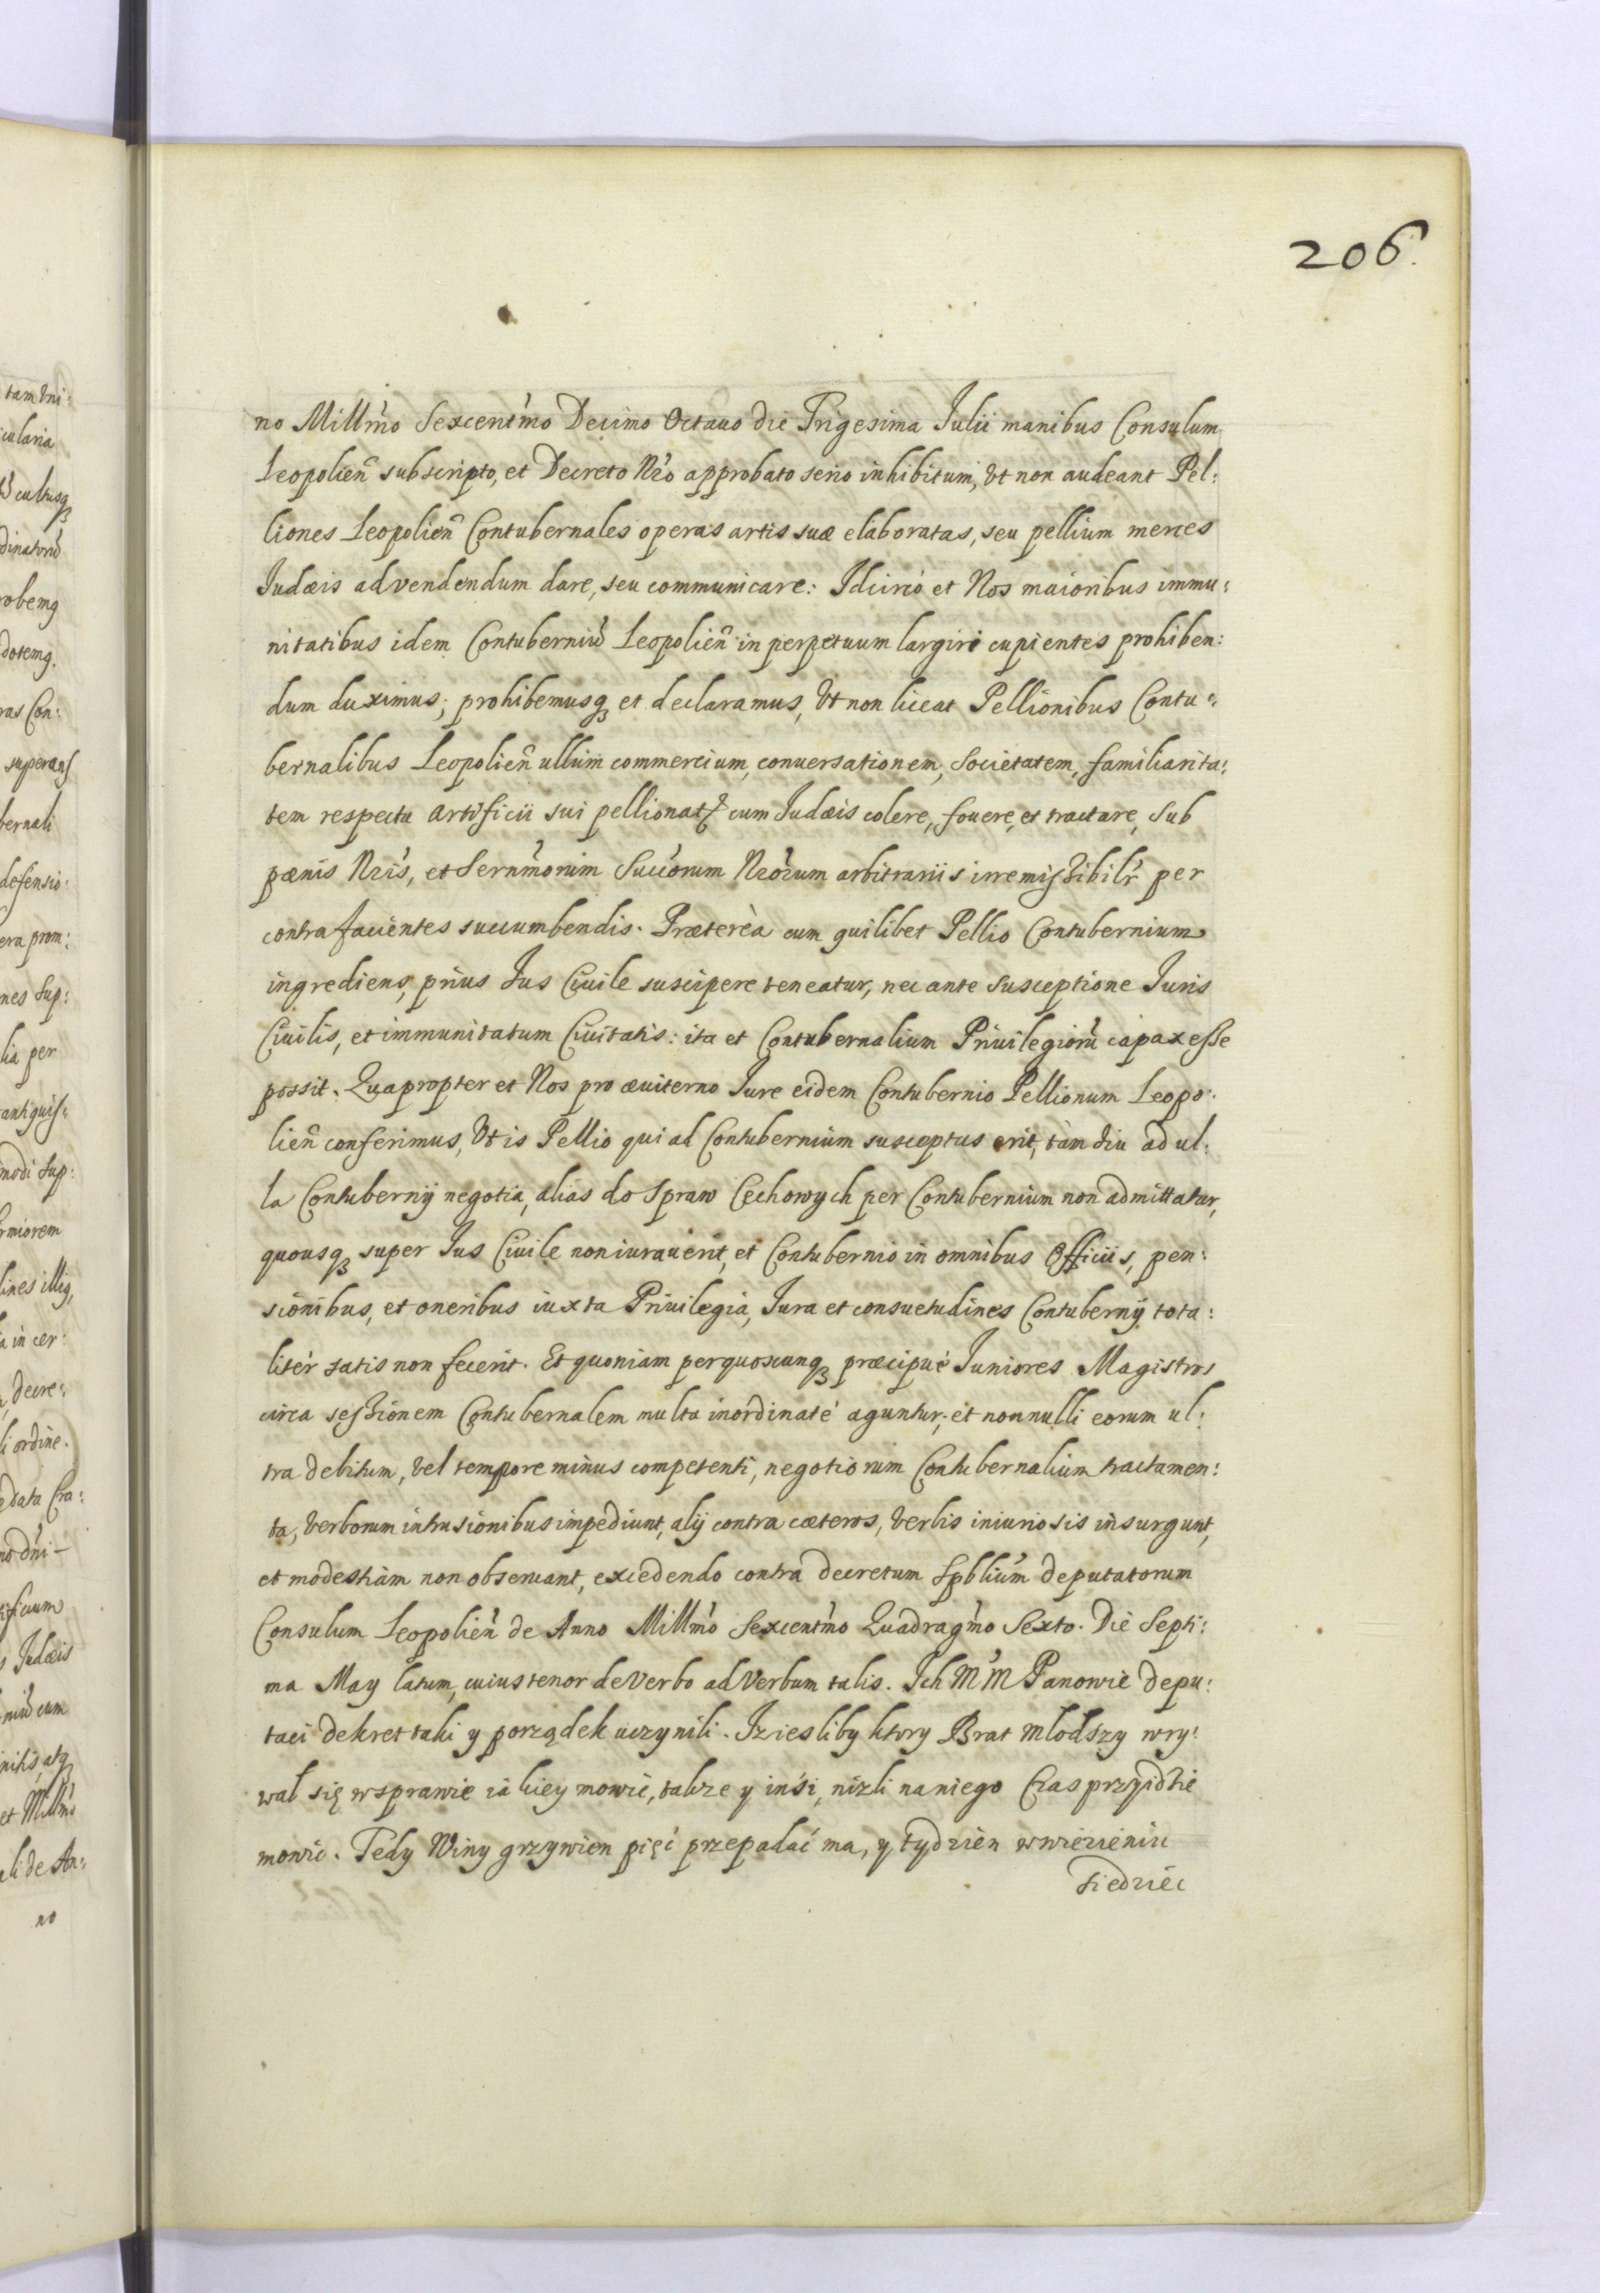 206.
no Millm̃o Sexcentm̃o Decimo Octauo die Trigesima Julii manibus Consulum
Leopolien̄ subscripto, et Decreto Nr̃o approbato serio inhibitum, Vt non audeant Pel:
liones Leopolien̄ Contubernales operas artis suæ elaboratas, seu pellium merces
Judæis ad vendendum dare, seu communicare: Idcirco et Nos maioribus immu:
nitatibus idem Contuberniũ Leopolien̄ in perpetuum largiri cupientes prohiben:
dum duximus; prohibemusqꝫ et declaramus, Vt non liceat Pellionibus Contu:
bernalibus Leopolien̄ ullum commercium, conuersationem, Societatem, familiarita:
tem respectu artificii sui pellionatꝰ cum Judæis colere, fouere, et tractare, Sub
pœnis Nr̃is, et Sernm̃orum Succ̃orum Nr̃orum arbitrariis irremissibilr̃ per
contrafacientes succumbendis. Prætereà cum quilibet Pellio Contubernium
ingrediens, prius Jus Ciuile suscipere teneatur, nec ante Susceptione Juris
Ciuilis, et immunitatum Ciuitatis: ita et Contubernalium Priuilegiorũ capax esse
possit. Quapropter et Nos pro æuiterno Jure eidem Contubernio Pellionum Leopo:
lien̄ conferimus, Vt is Pellio qui ad Contubernium susceptus erit, tàm diu ad ul:
la Contubernij negotia, aliàs do Spraw Cechowych per Contubernium non admittatur,
quousqꝫ super Jus Ciuile non iurauerit, et Contubernio in omnibus Officiis, pen:
sionibus, et oneribus iuxta Priuilegia, Jura et consuetudines Contubernij tota:
litèr satis non fecerit. Et quoniam per quoscunqꝫ præcipuè Juniores Magistros
circa sessionem Contubernalem multa inordinatè aguntur, et nonnulli eorum ul:
tra debitum, Vel tempore minus competenti, negotiorum Contubernalium tractamen:
ta, Verborum intrusionibus impediunt, alij contra cæteros, Verbis iniuriosis insurgunt,
et modestiam non obseruant, excedendo contra decretum Spb̃lium deputatorum
Consulum Leopolien̄ de Anno Millm̃o Sexcentm̃o Quadragm̃o Sexto. Die Septi:
ma May latum, cuius tenor de Verbo ad Verbum talis. Ich Mm̃ Panowie depu:
taci dekret taki y porządek uczynili. Iz iesliby ktory Brat mlodszy wry:
wal się w sprawie iakiey mowic, takze y insi, nizli na niego Czas przyidzie
mowic. Tedy Winy grzywien pięć przepadać ma, y tydzien w wiezieniu
siedziec